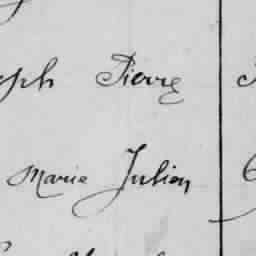 seph Pierre
Marie Julien